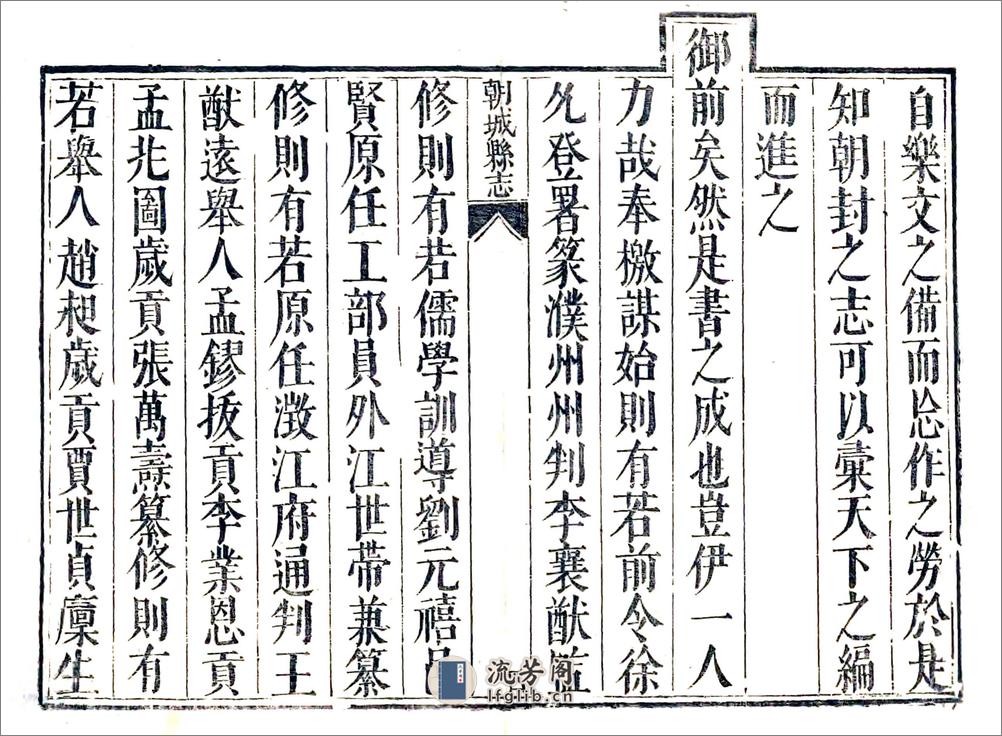 自樂文之備而忘作之勞於是
知朝封之志可以彙天下之編
而進之
御前矣然是書之成也豈伊一人
力哉奉檄謀始則有若前令徐
登署篆濮州州判李襄猷監
朝城縣志
修則有若儒學訓導劉元禧
賢原任工部員外江世帶兼纂
修則有若原任澂江府通判王
猷遠舉人孟鏐拔貢李業恩貢
孟兆圖歲貢張萬壽纂修則有
若舉人趙昶歲貢賈世貞廩生
流芳阁
lfglib.cn